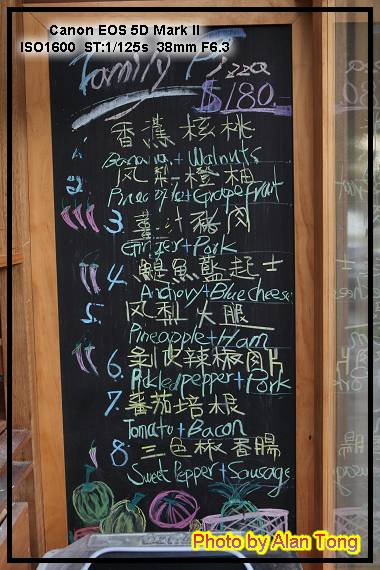 Canon EOS 5D Mark II
ISO1600 ST:1/125s 38mm F6.3
Family Pizza
$180.
1. 香蕉核桃
Banana + Walnuts
2. 鳳梨橙柚
Pineapple + Grapefruit
3. 薑汁豬肉
Ginger + Pork
4. 鯷魚藍起士
Anchovy + Blue cheese
5. 鳳梨火腿
Pineapple + Ham
6. 剝皮辣椒肉片
Pickled pepper + Pork
7. 蕃茄培根
Tomato + Bacon
8. 三色椒香腸
Sweet Pepper + Sausage
Photo by Alan Tong